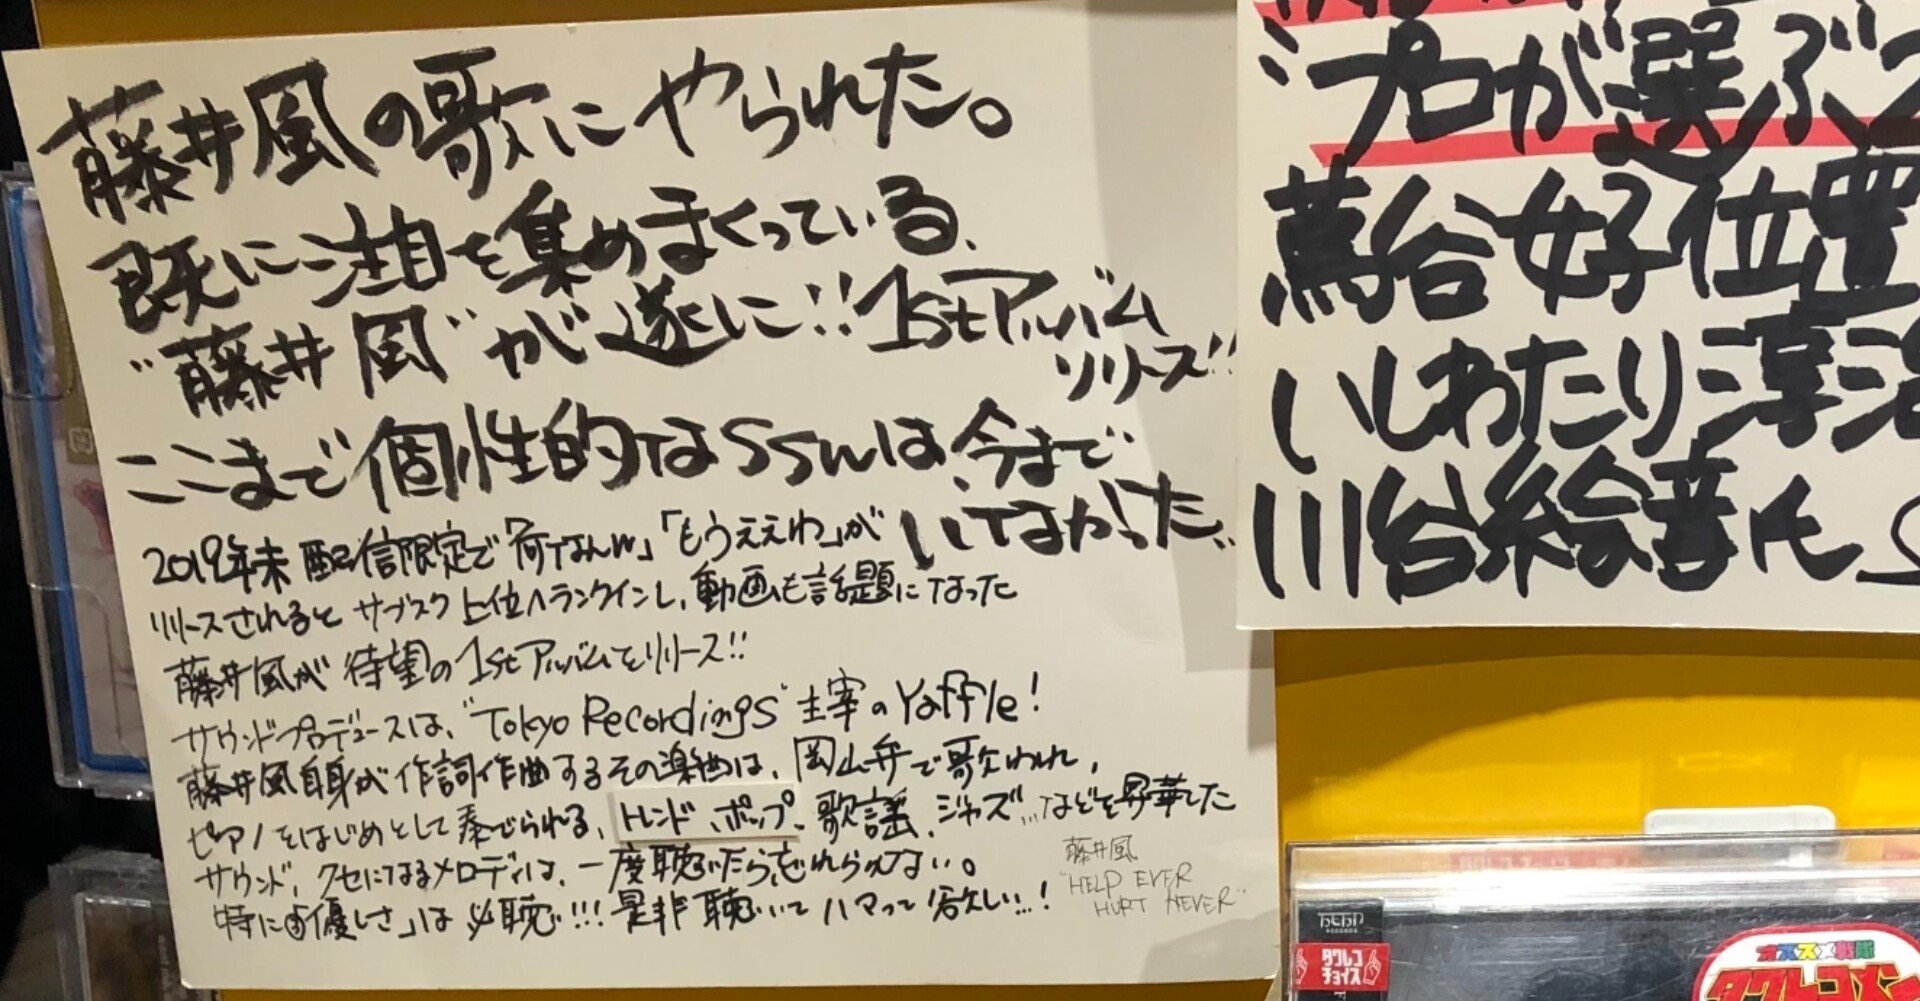 藤井風の歌にやられた。
既に注目を集めまくっている、
"藤井風"が遂に!!1stアルバム
リリース!!
ここまで個性的なSSWは、今まで
いなかった。
2019年末 配信限定で「何なんw」「もうええわ」が
リリースされるとサブスク上位へランクインし、動画も話題になった
藤井風が待望の1stアルバムをリリース!!
サウンドプロデュースは、"Tokyo Recordings"主宰のYaffle!
藤井風自身が作詞作曲するその楽曲は、岡山弁で歌われ、
ピアノをはじめとして奏でられる、トレンド、ポップ、歌謡、ジャズ…などを昇華した
サウンド、クセになるメロディは、一度聴いたら忘れられない。
特に⑤「優しさ」は必聴!!!是非聴いてハマって欲しい…!
藤井風
"HELP EVER
HURT NEVER"
"プロが選ぶ2
蔦谷好位置
いしわたり淳治
川谷絵音氏
RECORDS
タワレコ
チョイス
オススメ戦隊
タワレコメン